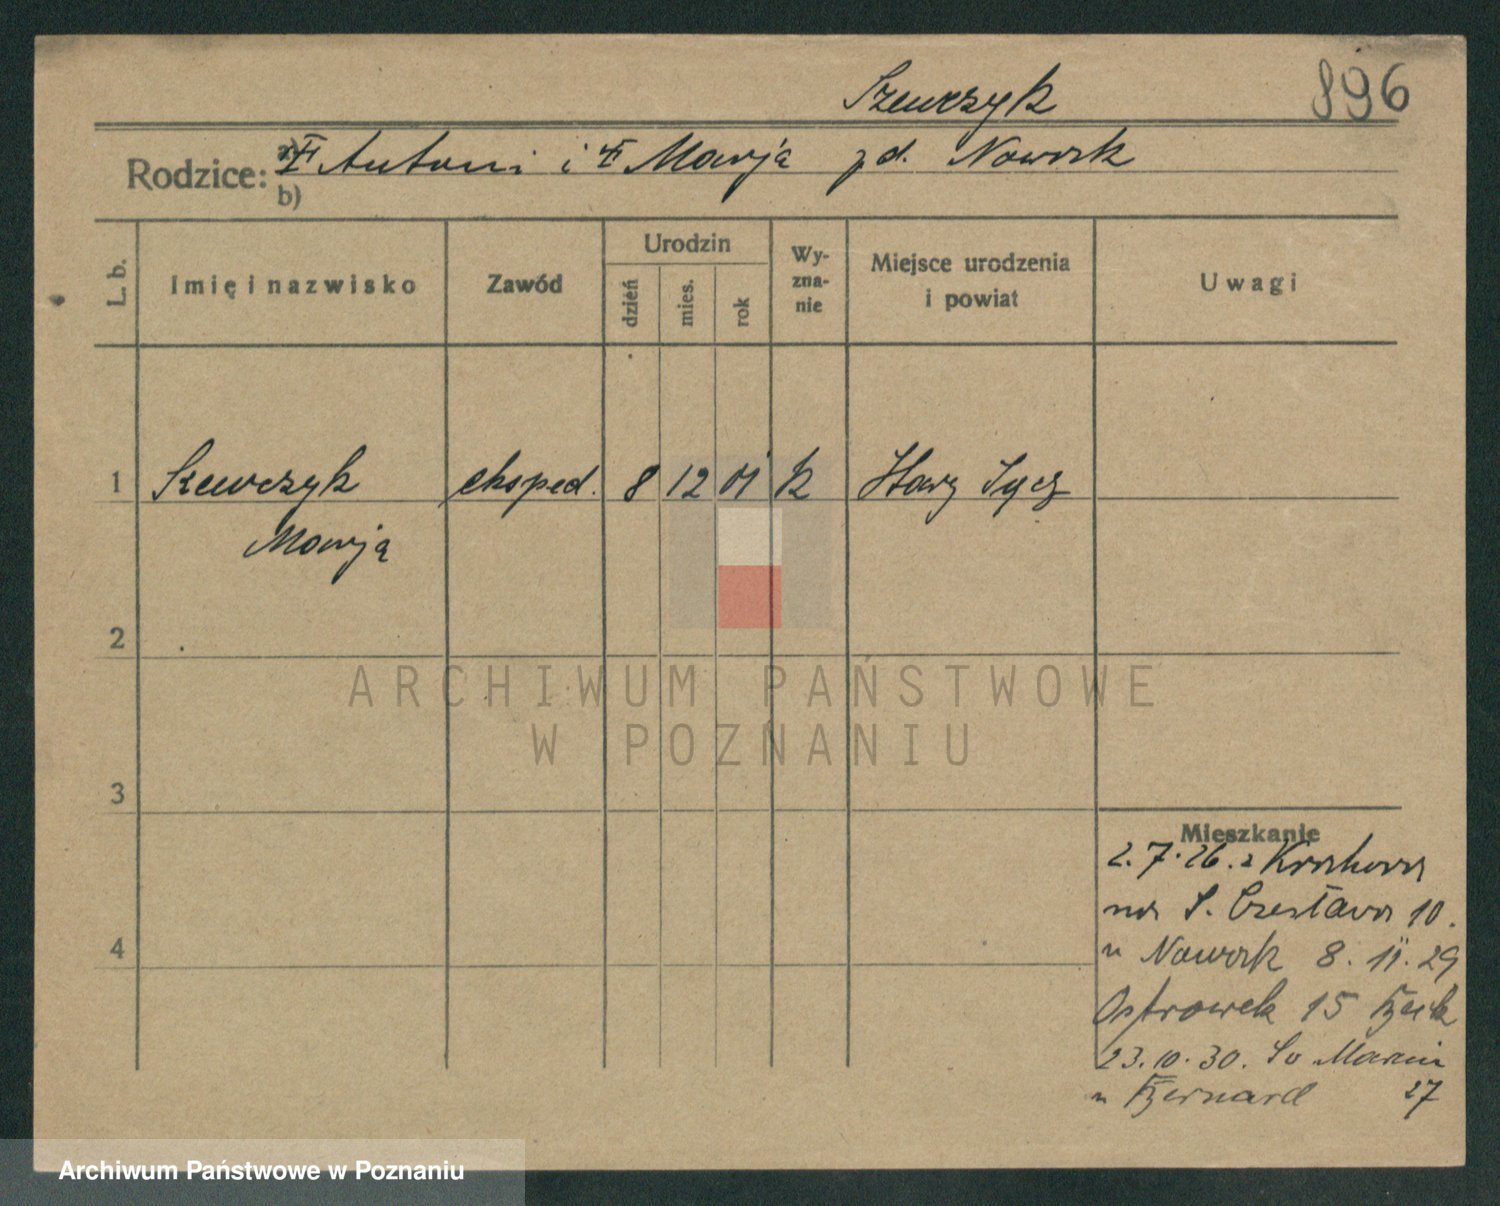 Szewczyk 896
Rodzice: a) Antoni i Marja zd. Nowak
b)
L. b. Imię i nazwisko Zawód Urodzin Wy-zna-nie Miejsce urodzenia i powiat Uwagi
dzień mies. rok
1 Szewczyk eksped. 8 12 01 k Stary Sącz
Marja
2
3
4
Mieszkanie
2.7.26. z Krakowa
na S. Czesława 10.
u Nowak 8. 11. 29
Ostrówek 15
23.10.30. Św Marcin
u Bernard 27
ARCHIWUM PAŃSTWOWE
W POZNANIU
Archiwum Państwowe w Poznaniu